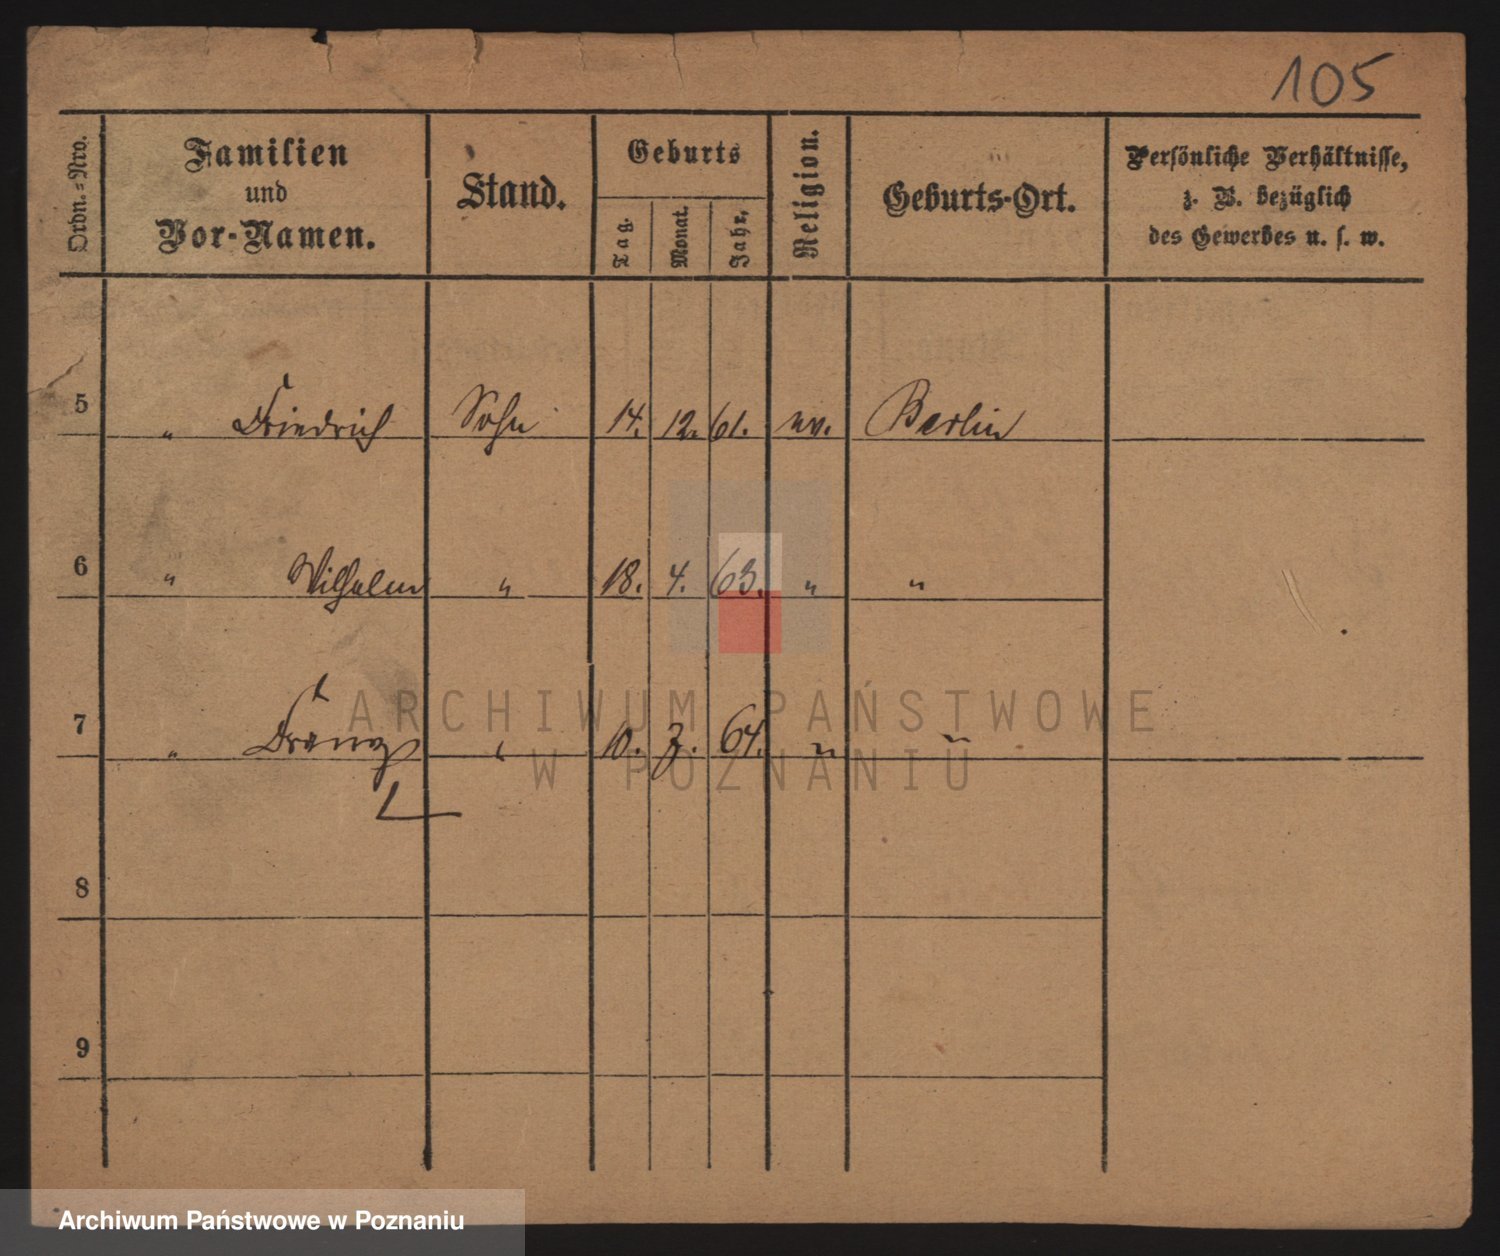 105
Ordn.=Nro.
Familien
und
Vor-Namen.
Stand.
Geburts
Tag.
Monat.
Jahr.
Religion.
Geburts-Ort.
Persönliche Verhältnisse,
z. B. bezüglich
des Gewerbes u. s. w.
5 " Friedrich Sohn 14. 12. 61. ev. Berlin
6 " Wilhelm " 18. 4. 63. " "
7 " Franz " 10. 3. 64. " "
8
9
ARCHIWUM PAŃSTWOWE
W POZNANIU
Archiwum Państwowe w Poznaniu